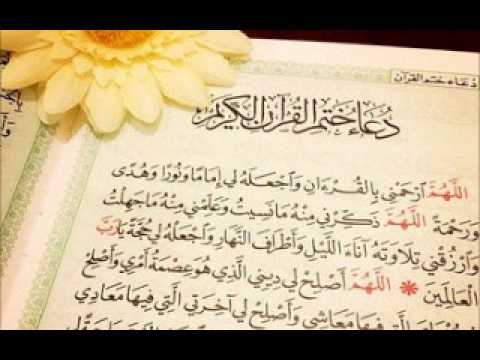 دُعَاءُ خَتْمِ القُرْآنِ
دُعَاءُ خَتْمِ القُرْآنِ الكَرِيْمِ
اللَّهُمَّ ارْحَمْنِي بِالقُرْءَانِ وَاجْعَلهُ لِي إِمَامًا وَنُورًا وَهُدًى
وَرَحْمَةً اللَّهُمَّ ذَكِّرْنِي مِنْهُ مَانَسِيتُ وَعَلِّمْنِي مِنْهُ مَاجَهِلْتُ
وَارْزُقْنِي تِلَاوَتَهُ آنَاءَ اللَّيْلِ وَأَطْرَافَ النَّهَارِ وَاجْعَلْهُ لِي حُجَّةً يَارَبَّ
العَالَمِينَ * اللَّهُمَّ أَصْلِحْ لِي دِينِي الَّذِي هُوَ عِصْمَةُ أَمْرِي وَأَصْلِحْ
لِي دُنْيَايَ الَّتِي فِيهَا مَعَاشِي وَأَصْلِحْ لِي آخِرَتِي الَّتِي فِيهَا مَعَادِي